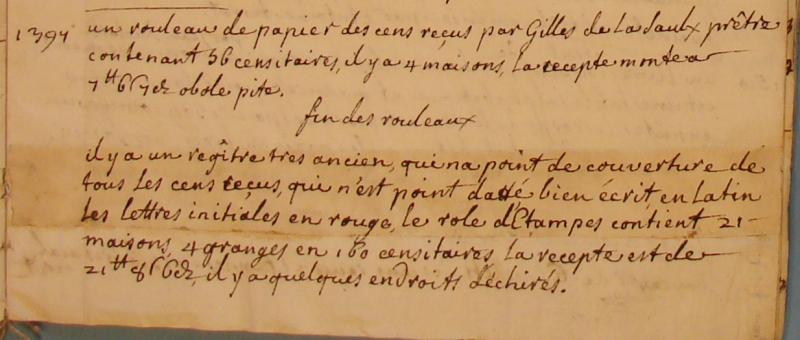 1397 un rouleau de papier des cens reçus par Gilles de la Saulx prêtre
contenant 36 censitaires, il y a 4 maisons, la recepte monte a
7 tt 6 s 7 d obole pite.
fin des rouleaux
il y a un regître tres ancien, qui na point de couverture de
tous les cens reçus, qui n'est point datté bien écrit, en Latin
les lettres initiales en rouge, le role d'Etampes contient 21
maisons, 4 granges en 160 censitaires la recepte est de
21 tt 8 s 6 d, il y a quelques endroits déchirés.